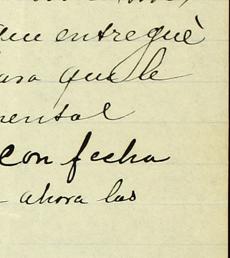 que entregué
para que le
mental
con fecha
ahora las